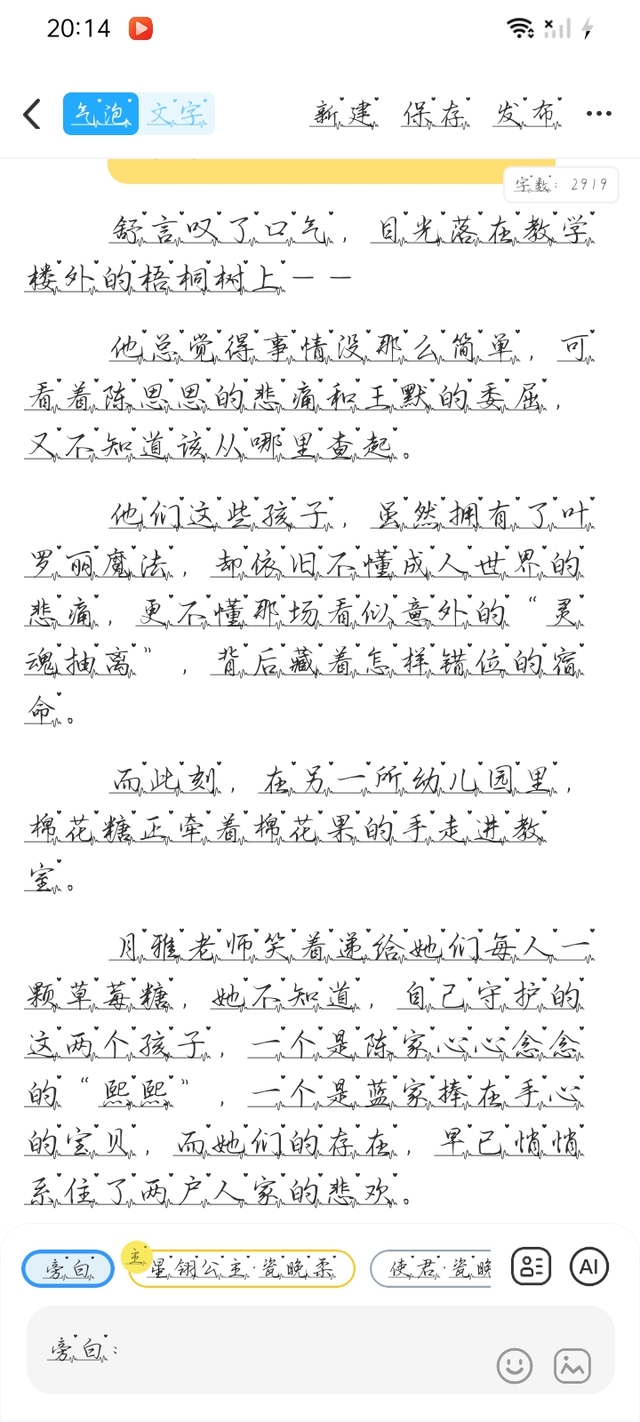 20:14
气泡 文字 新建 保存 发布
字数: 2919
舒言叹了口气，目光落在教学
楼外的梧桐树上——
他总觉得事情没那么简单，可
看着陈思思的悲痛和王默的委屈，
又不知道该从哪里查起。
他们这些孩子，虽然拥有了叶
罗丽魔法，却依旧不懂成人世界的
悲痛，更不懂那场看似意外的“灵
魂抽离”，背后藏着怎样错位的宿
命。
而此刻，在另一所幼儿园里，
棉花糖正牵着棉花果的手走进教
室。
月雅老师笑着递给她们每人一
颗草莓糖，她不知道，自己守护的
这两个孩子，一个是陈家心心念念
的“熙熙”，一个是蓝家捧在手心
的宝贝，而她们的存在，早已悄悄
系住了两户人家的悲欢。
旁白 主 星翎公主·瓷晚柔 使君·瓷晚
AI
旁白：